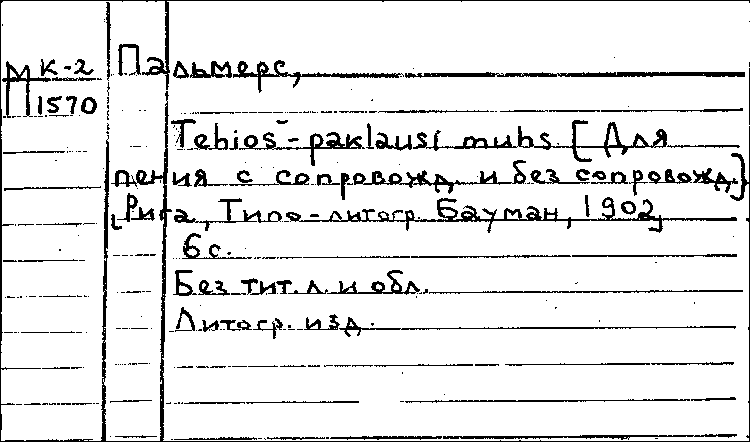 М К-2
П 1570
Пальмерс,
Tehios-paklausi muhs. [Для
пения с сопровожд. и без сопровожд.]
[Рига, Типо-литогр. Бауман, 1902]
6 с.
Без тит. л. и обл.
Литогр. изд.